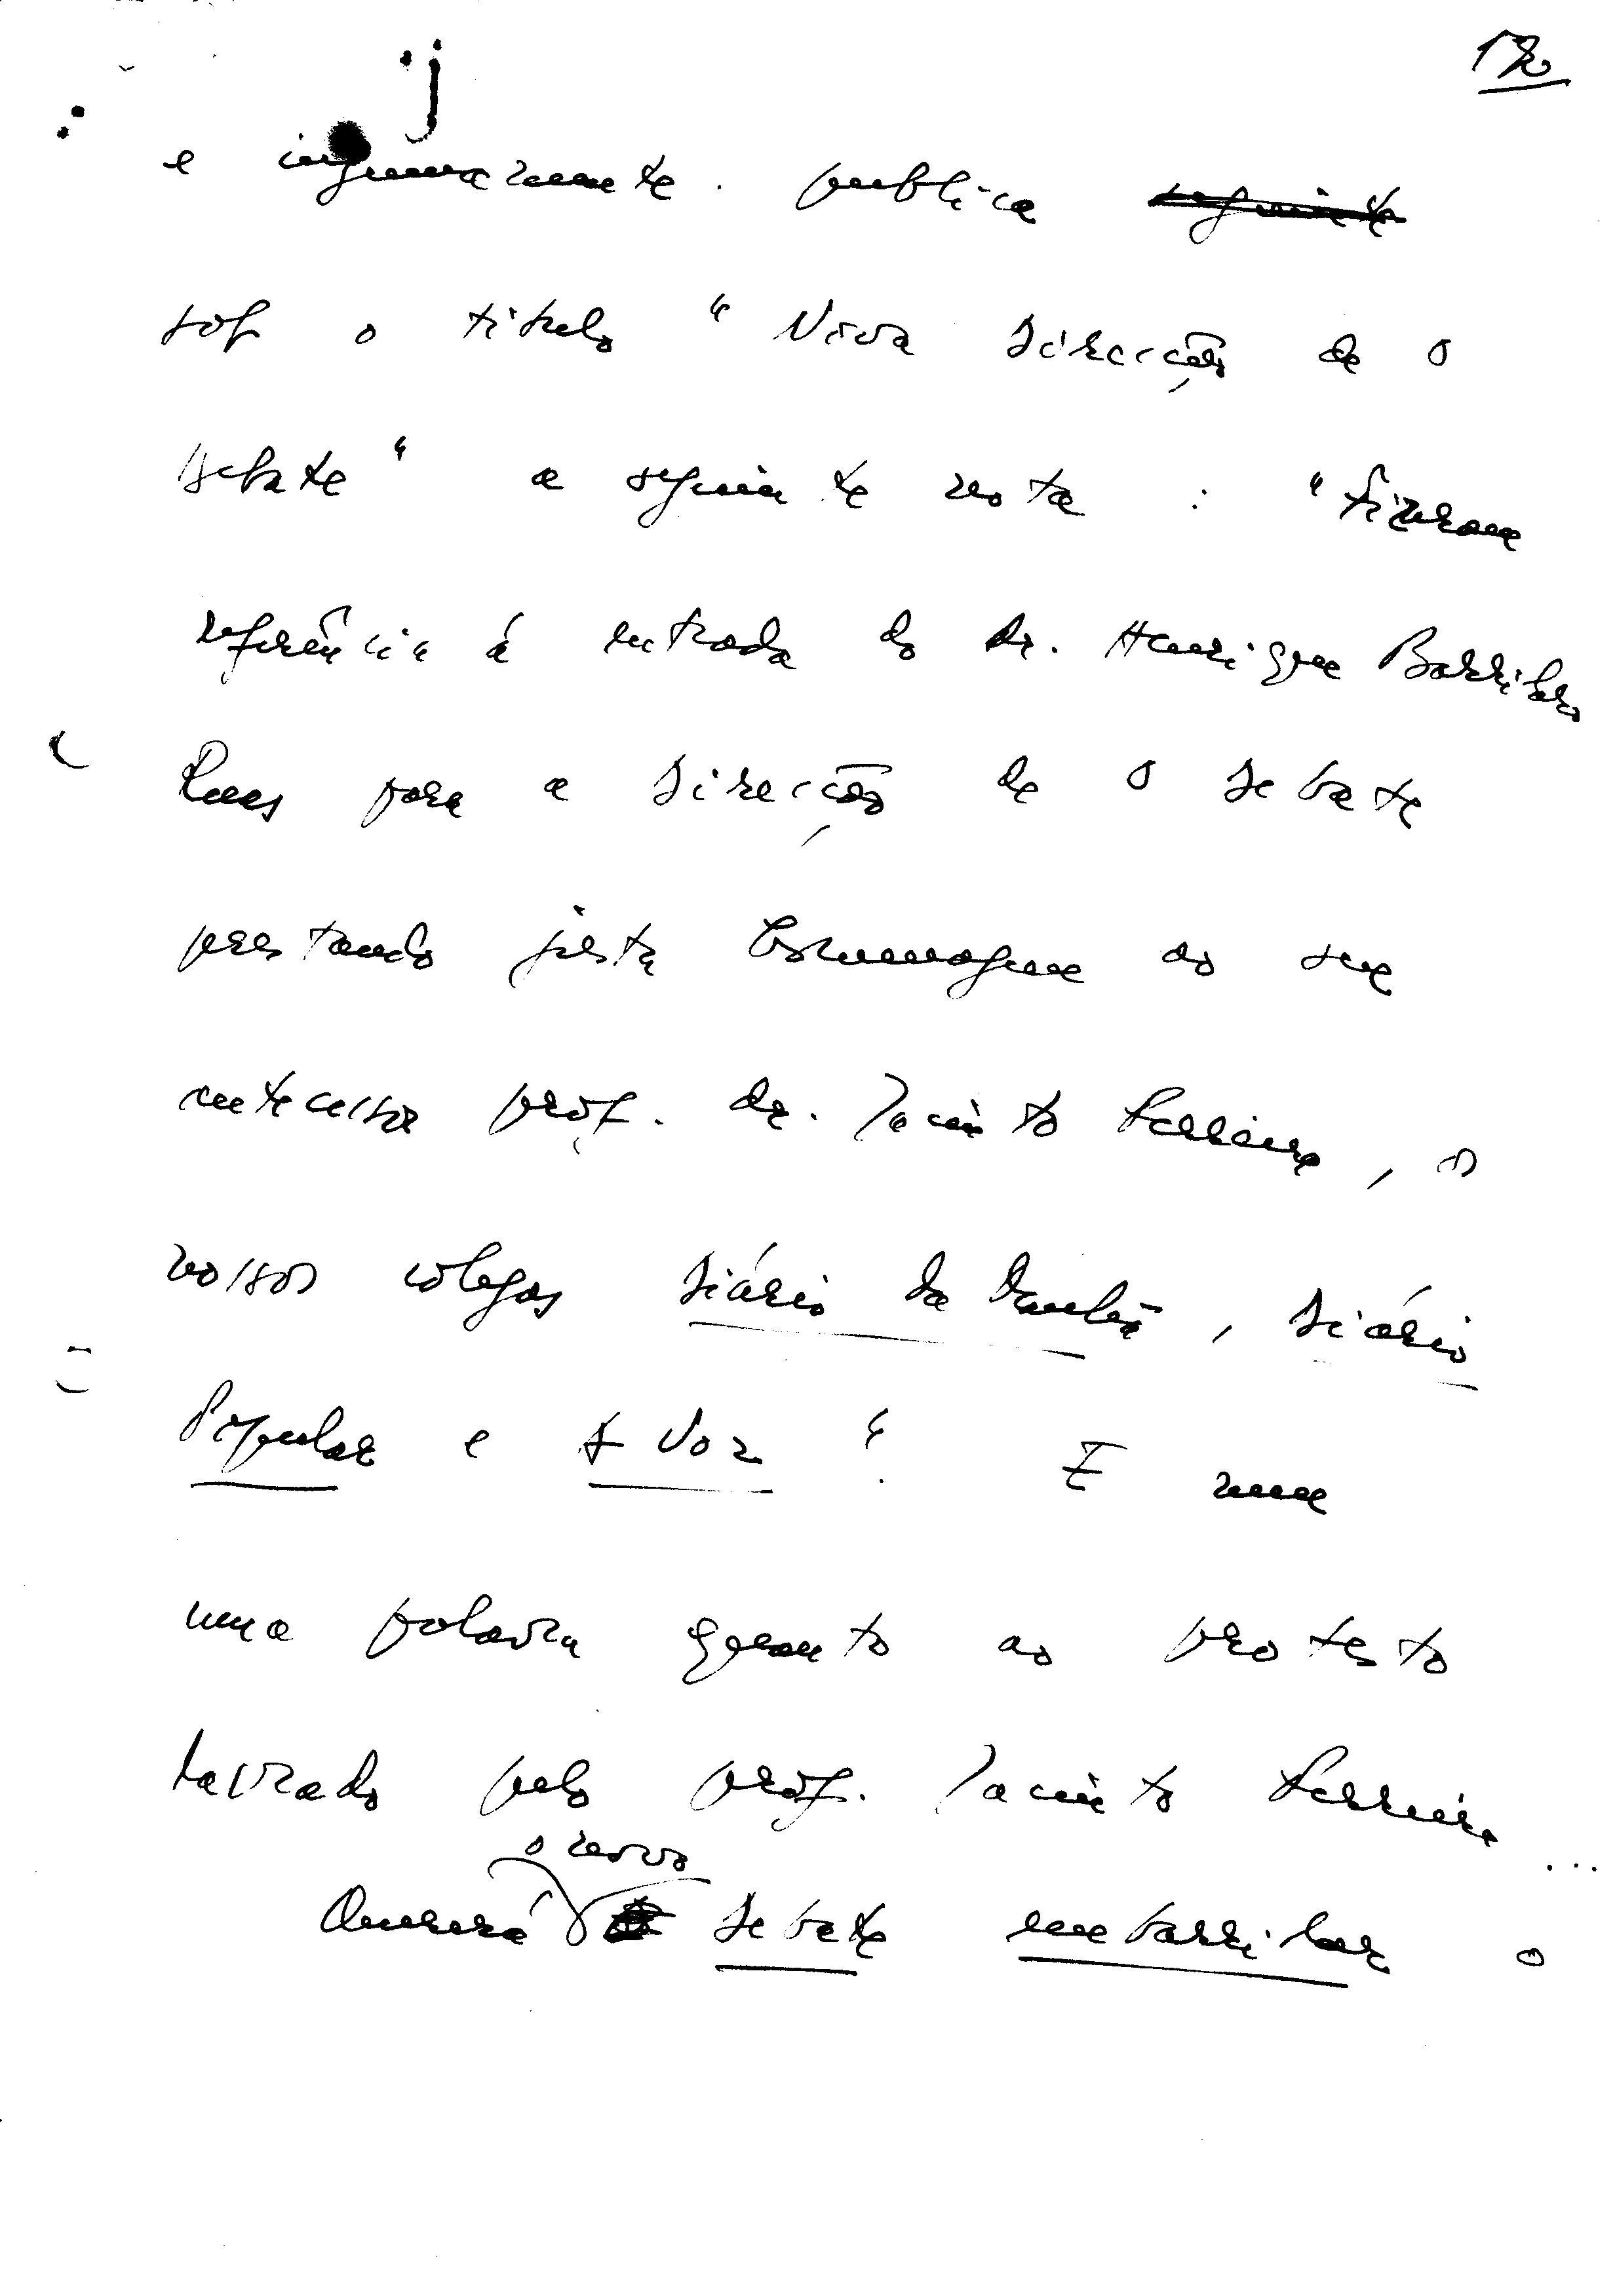 e ingenuamente. publica ~~seguinte~~
sob o título "Nova direcção de O
debate" a seguinte nota : "Fizeram
referência á entrada do dr. Henrique Barrilaro
Ruas para a direcção de O debate
prestando justa homenagem ao seu
antecessor prof. dr. Jacinto Ferreira, os
nossos colegas Diário da Manhã, Diário
Popular e A Voz".  E nem
uma palavra quanto ao protesto
lavrado pelo prof. Jacinto Ferreira ...
o novo
Quererá debate embarrilar o